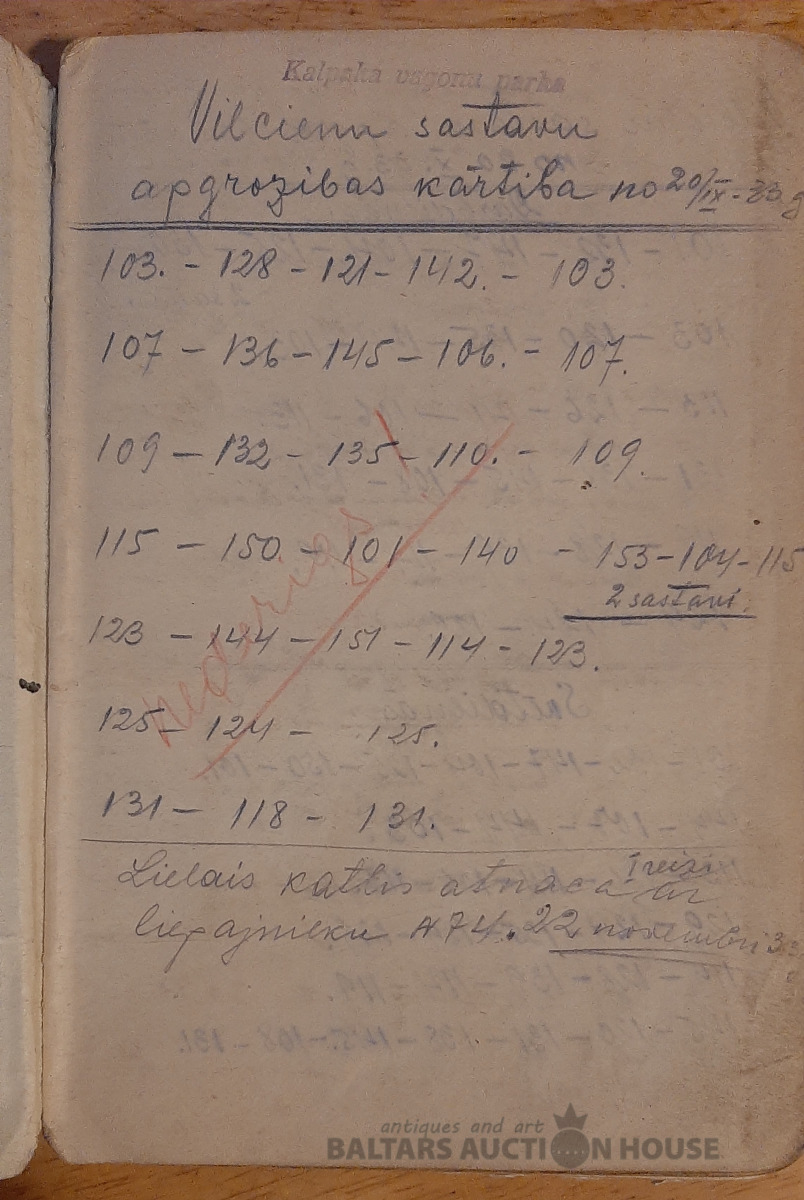 Kalpaka vagonu parks
Vilcienu sastavu
apgrozības kārtība no 20/IX - 33.g
103. - 128 - 121 - 142. - 103.
107 - 136 - 145 - 106. - 107.
109 - 132 - 135 - 110. - 109.
115 - 150 - 101 - 140 - 153 - 104 - 115
2 sastavi.
123 - 144 - 151 - 114 - 123.
nederīgs
125 - 124 - 125.
131 - 118 - 131.
Lielais katlis atnāca 1 reizi ar
liepajnieku N 74. 22 novembrī 33
antiques and art
BALTARS AUCTION HOUSE